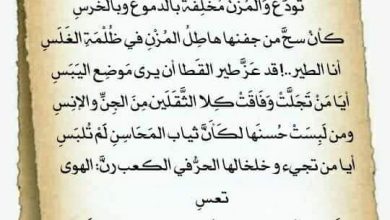 تودّع والمُزنُ مُخلِفةٌ بالدموعِ وبالخَرسِ
كأنْ سحَّ من جفنها هاطِلُ المُزْنِ في ظُلْمَةِ الغَلَسِ
أنا الطير..! قد عَزَّ طيرِ القَطا أن يرى مَوضِع اليَبَسِ
أيَا مَنْ تَجَلَّتْ وَفَاقَتْ كِلا الثَّقَلَينِ مِنَ الجِنِّ والإنِسِ
ومن لَبِسَتْ حُسنَها لكَأنَّ ثيابَ المَحَاسِنِ لَمْ تُلبَسِ
أيا من تجيء و خلخالها الحرُّ في الكعب رنَّ: الهوى
تعسِ